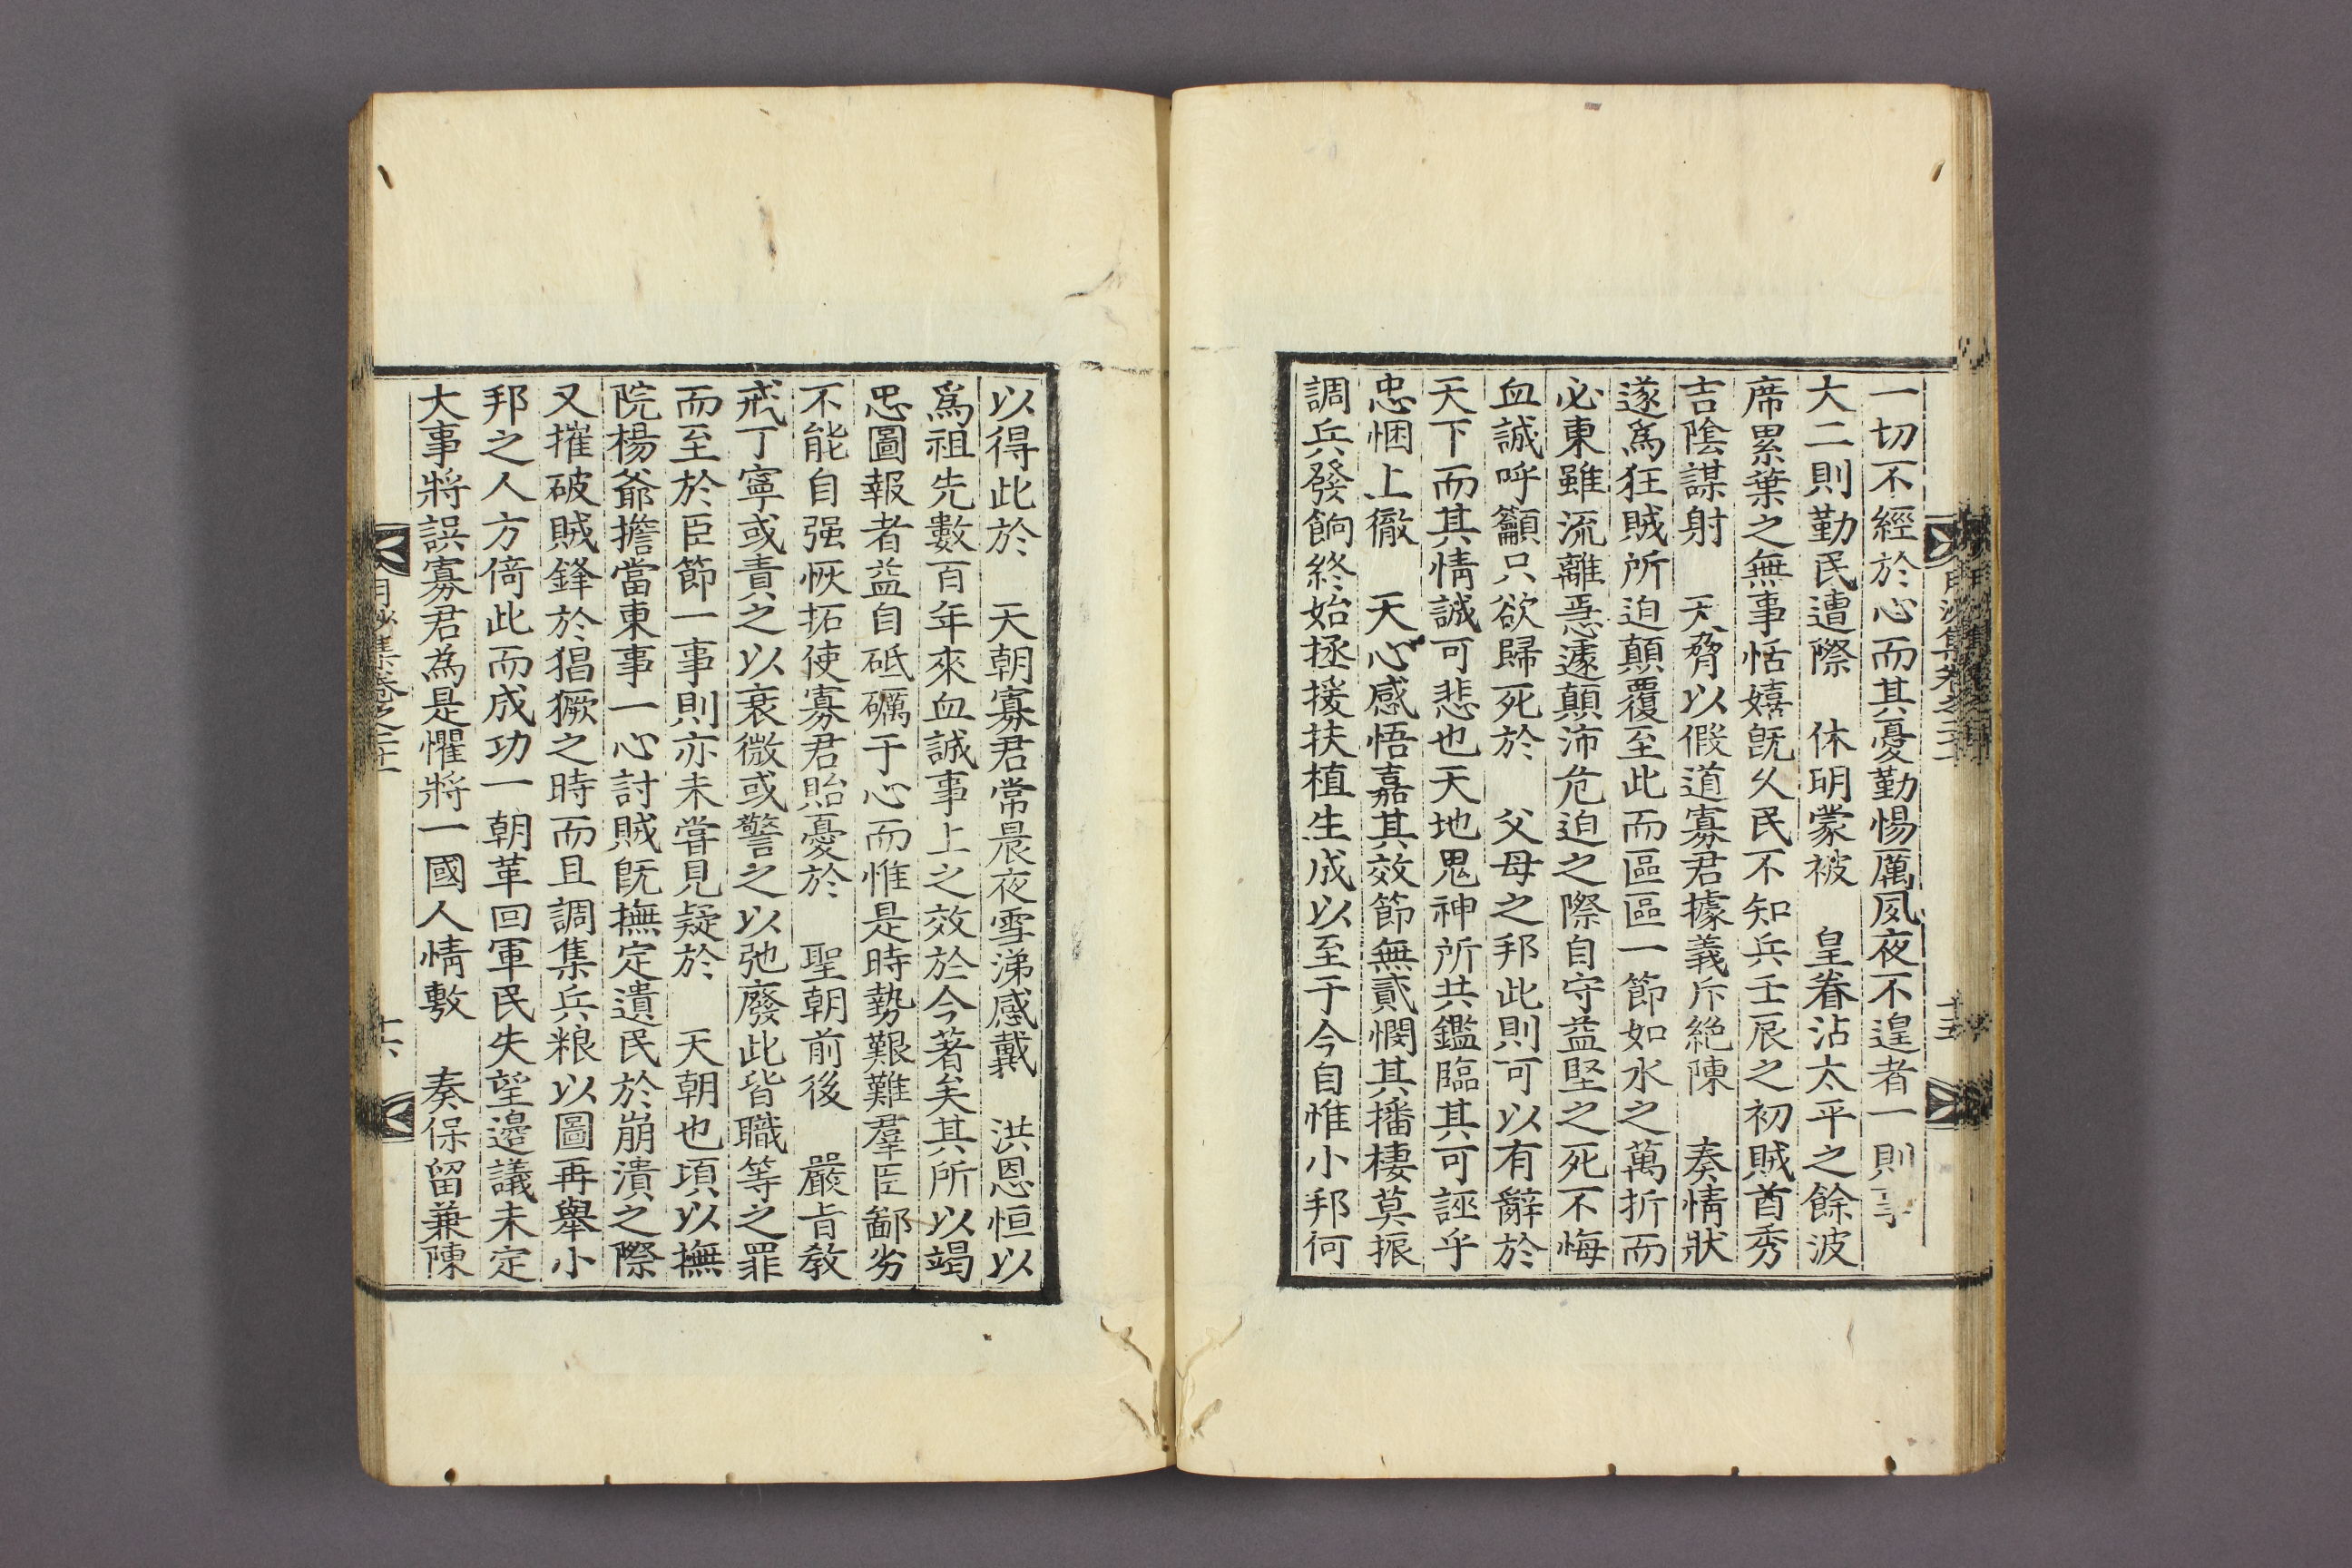 一切不經於心而其憂勤惕厲夙夜不遑者一則事
大二則勤民遭際 休明蒙被 皇眷沾太平之餘波
席累葉之無事恬嬉旣久民不知兵壬辰之初賊酋秀
吉陰謀射 天脅以假道寡君據義斥絶陳 奏情狀
遂爲狂賊所迫顚覆至此而區區一節如水之萬折而
必東雖流離惡遽顚沛危迫之際自守益堅之死不悔
血誠呼籲只欲歸死於 父母之邦此則可以有辭於
天下而其情誠可悲也天地鬼神所共鑑臨其可誣乎
忠悃上徹 天心感悟嘉其效節無貳憫其播棲莫振
調兵發餉終始拯援扶植生成以至于今自惟小邦何
月沙集卷之二十一
十五
以得此於 天朝寡君常晨夜雪涕感戴 洪恩恒以
爲祖先數百年來血誠事上之效於今著矣其所以竭
忠圖報者益自砥礪于心而惟是時勢艱難羣臣鄙劣
不能自强恢拓使寡君貽憂於 聖朝前後 嚴旨敎
戒丁寧或責之以衰微或警之以弛廢此皆職等之罪
而至於臣節一事則亦未嘗見疑於 天朝也頃以撫
院楊爺擔當東事一心討賊旣撫定遺民於崩潰之際
又摧破賊鋒於猖獗之時而且調集兵粮以圖再擧小
邦之人方倚此而成功一朝革回軍民失望邉議未定
大事將誤寡君為是懼將一國人情敷 奏保留兼陳
月沙集卷之二十一
十六